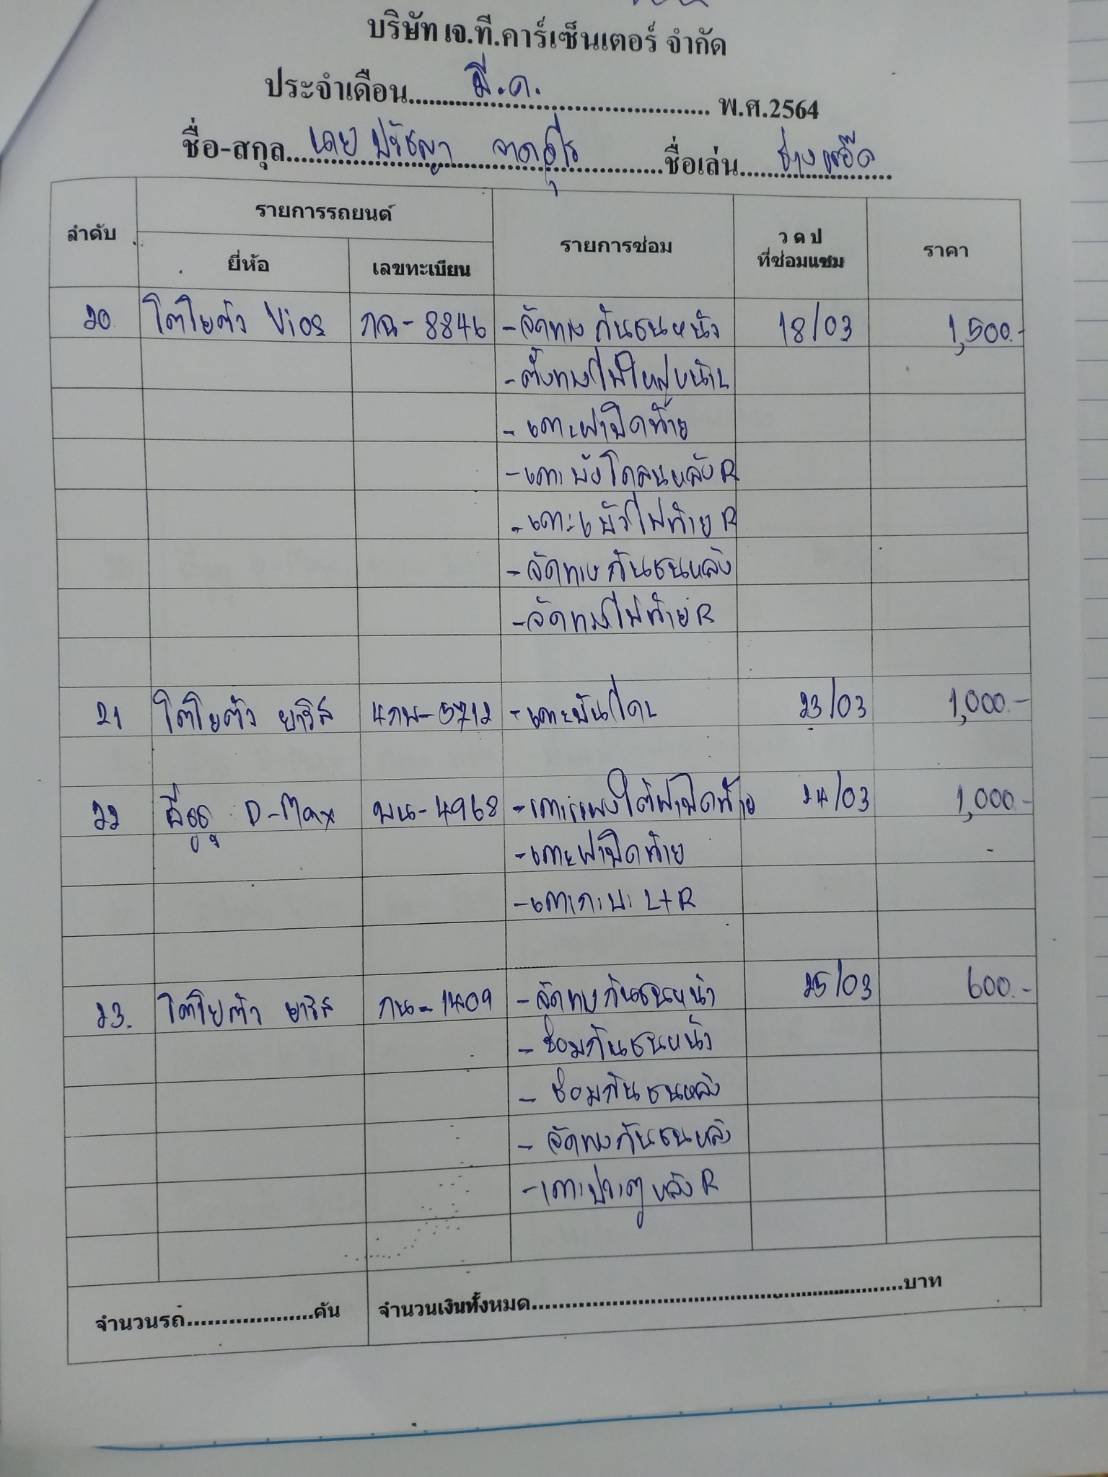 บริษัท เจ.ที.คาร์เซ็นเตอร์ จำกัด
ประจำเดือน......มี.ค.......................... พ.ศ.2564
ชื่อ-สกุล...นาย ปรัชญา.........ชื่อเล่น.....ช่าง
ลำดับ รายการรถยนต์ รายการซ่อม ว ด ป ที่ซ่อมแซม ราคา
ยี่ห้อ เลขทะเบียน
20 โตโยต้า Vios กฉ-8846 -จัดทรงกันชนหน้า 18/03 1,500.-
-ตั้งทรงไฟใหญ่หน้า L
-เคาะฝาปิดท้าย
-เคาะบังโคลนหลัง R
-เคาะเบ้าไฟท้าย R
-จัดทรงกันชนหลัง
-จัดทรงไฟท้าย R
21 โตโยต้า ยาริส 4กพ-5712 -เคาะบันได L 23/03 1,000.-
22 อีซูซุ D-Max ผน-4968 -เคาะแผงใต้ฝาปิดท้าย 24/03 1,000.-
-เคาะฝาปิดท้าย
-เคาะกะบะ L+R
23. โตโยต้า ยาริส กน-1409 -จัดทรงกันชนหน้า 25/03 600.-
- ซ่อมกันชนหน้า
- ซ่อมกันชนหลัง
- จัดทรงกันชนหลัง
-เคาะประตูหลัง R
จำนวนรถ...................คัน จำนวนเงินทั้งหมด.......................................................บาท